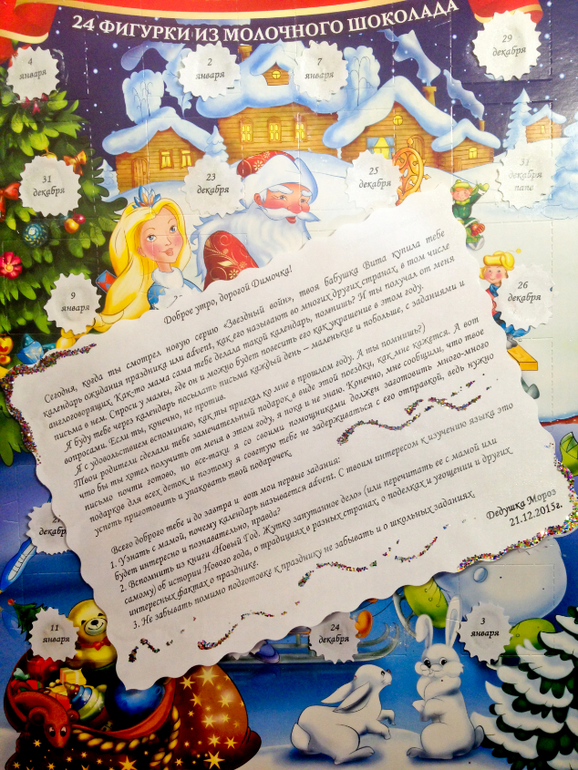 24 ФИГУРКИ ИЗ МОЛОЧНОГО ШОКОЛАДА
4
января
2
января
7
января
29
декабря
31
декабря
23
декабря
25
декабря
31
декабря
папе
9
января
26
декабря
Доброе утро, дорогой Димочка!
Сегодня, когда ты смотрел новую серию «Звездный войн», твоя бабушка Вита купила тебе
календарь ожидания праздника или advent, как его называют во многих других странах, в том числе
англоговорящих. Как-то мама сама тебе делала такой календарь, помнишь? И ты получал от меня
письма в нем. Спроси у мамы, где он и можно будет повесить его как украшение в этом году.
Я буду тебе через календарь посылать письма каждый день – маленькие и побольше, с заданиями и
вопросами. Если ты, конечно, не против.
Я с удовольствием вспоминаю, как ты приехал ко мне в прошлом году. А ты помнишь?)
Твои родители сделали тебе замечательный подарок в виде этой поездки, как мне кажется. А вот
что бы ты хотел получить от меня в этом году, я пока и не знаю. Конечно, мне сообщили, что твое
письмо почти готово, но все-таки я со своими помощниками должен заготовить много-много
подарков для всех деток и поэтому я советую тебе не задерживаться с его отправкой, ведь нужно
успеть приготовить и упаковать твой подарочек.
Всего доброго тебе и до завтра и вот мои первые задания:
1. Узнать с мамой, почему календарь называется advent. С твоим интересом к изучению языка это
будет интересно и познавательно, правда?
2. Вспомнить из книги «Новый Год. Жутко запутанное дело» (или перечитать ее с мамой или
самому) об истории Нового года, о традициях в разных странах, о поделках и угощении и других
интересных фактах о празднике.
3. Не забывать помимо подготовке к празднику не забывать и о школьных заданиях.
Дедушка Мороз
21.12.2015г.
11
января
24
декабря
3
января